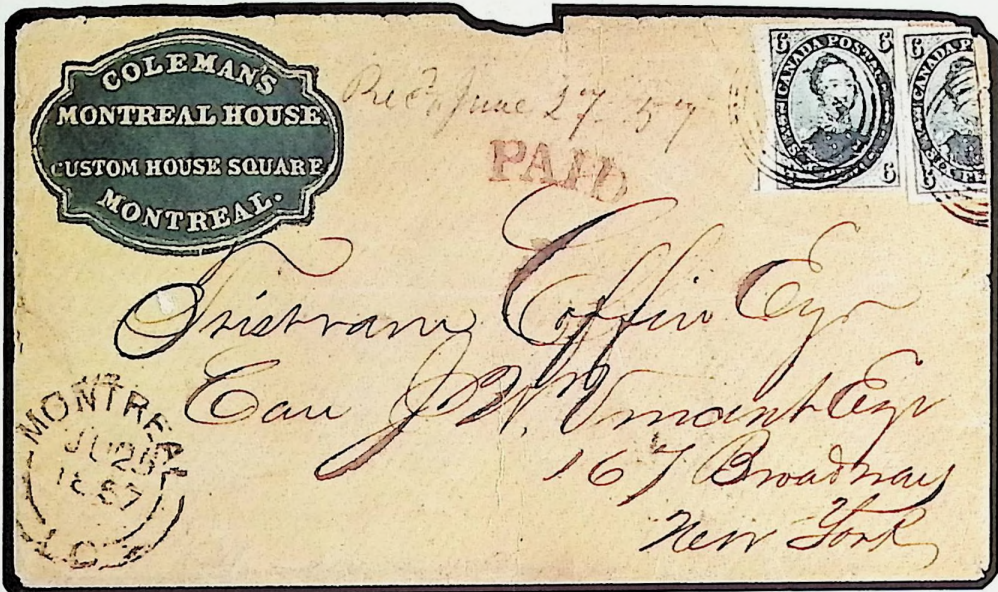 COLEMAN'S
MONTREAL HOUSE
CUSTOM HOUSE SQUARE
MONTREAL.
Rec'd June 27 57
PAID
6 CANADA POSTAG 6
6
6 CANADA P
6
Tristram Coffin Esqr
Care J. W. Esqr
167 Broadway
New York
MONTREAL
JU 26
1857
L.C.